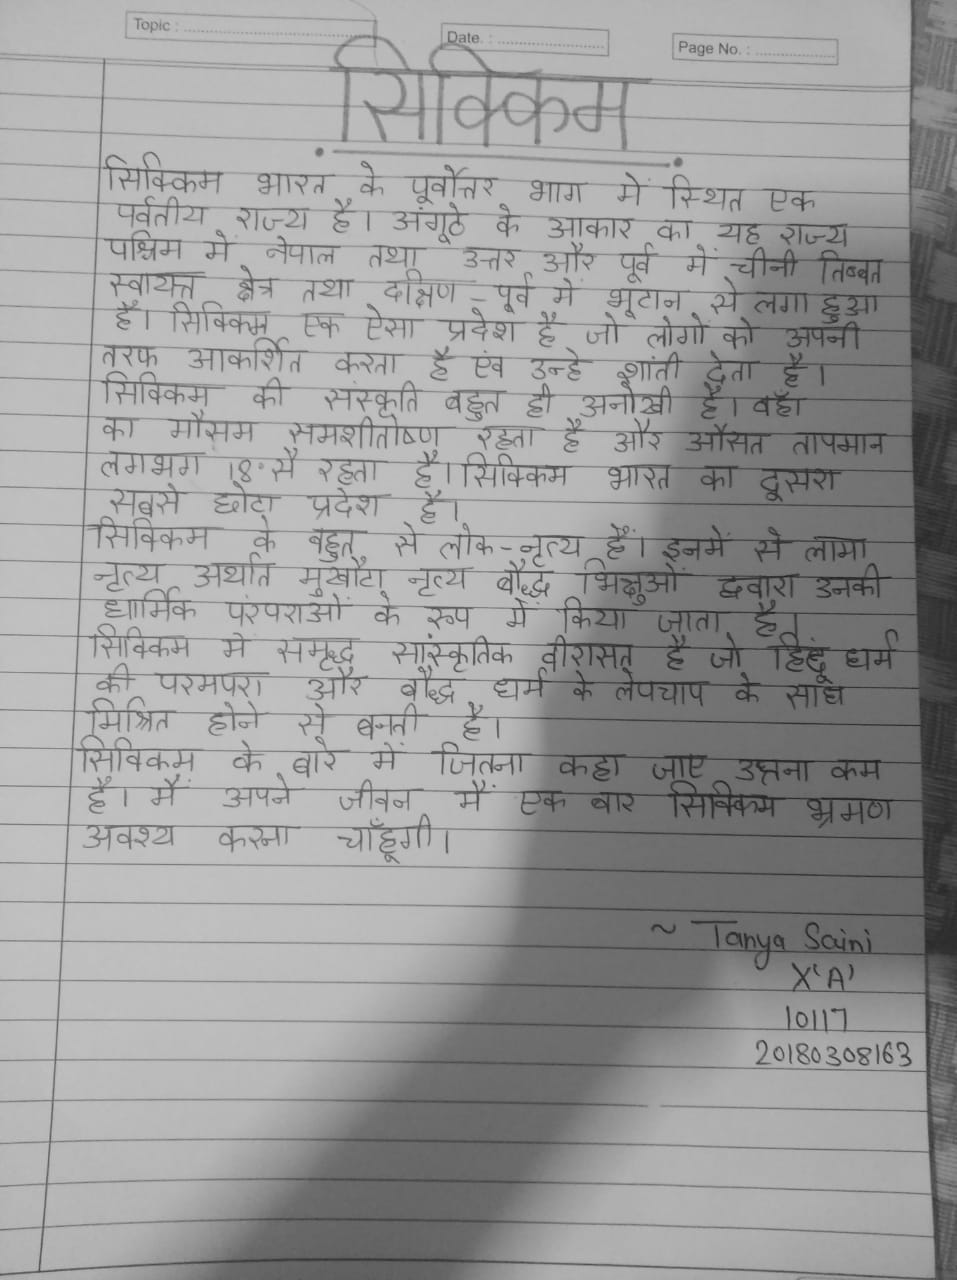 Topic : ..............................
Date. : ..............................
Page No. : ......................
सिक्किम
सिक्किम भारत के पूर्वोत्तर भाग में स्थित एक
पर्वतीय राज्य है। अंगूठे के आकार का यह राज्य
पश्चिम में नेपाल तथा उत्तर और पूर्व में चीनी तिब्बत
स्वायत्त क्षेत्र तथा दक्षिण - पूर्व में भूटान से लगा हुआ
है। सिक्किम एक ऐसा प्रदेश है जो लोगों को अपनी
तरफ आकर्शित करता है एंव उन्हे शांती देता है।
सिक्किम की संस्कृति बहुत ही अनोखी है। वहाँ
का मौसम समशीतोष्ण रहता है और औसत तापमान
लगभग 18° सै रहता है। सिक्किम भारत का दूसरा
सबसे छोटा प्रदेश है।
सिक्किम के बहुत से लोक-नृत्य हैं। इनमें से लामा
नृत्य अर्थात मुखौटा नृत्य बौद्ध भिक्षुओं द्वारा उनकी
धार्मिक परंपराओं के रूप में किया जाता है।
सिक्किम में समृद्ध सांस्कृतिक वीरासत है जो हिंदू धर्म
की परमपरा और बौद्ध धर्म के लेपचाप के साथ
मिश्रित होने से बनती है।
सिक्किम के बारे में जितना कहा जाए उतना कम
है। मैं अपने जीवन में एक बार सिक्किम भ्रमण
अवश्य करना चाँहूगी।
~ Tanya Saini
X'A'
10117
20180308163